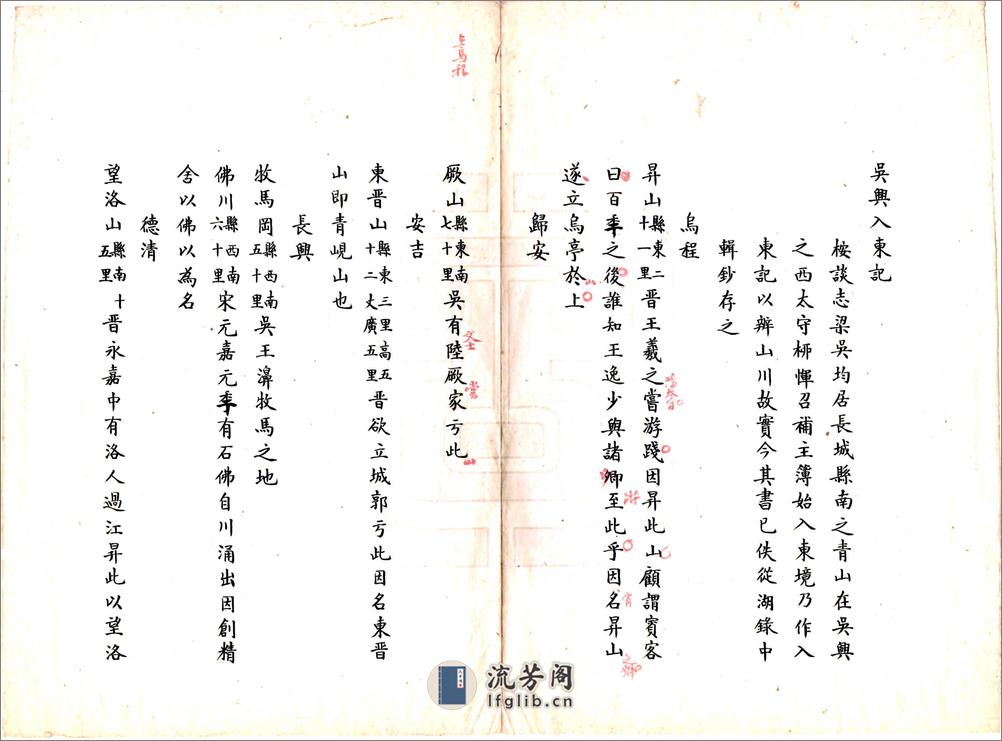 吳興入東記
桉談志梁吳均居長城縣南之青山在吳興
之西太守栁惲召補主簿始入東境乃作入
東記以辨山川故實今其書已佚從湖錄中
輯鈔存之
烏程
昇山縣東二十一里晉王羲之嘗游踐因昇此山顧謂賓客
曰百年之後誰知王逸少與諸卿至此乎因名昇山
遂立烏亭於上
歸安
厥山縣東南七十里吳有陸厥家亏此
安吉
東晋山縣東三里高五十二丈廣五里晋欲立城郭亏此因名東晋
山即青峴山也
長興
牧馬岡縣西南五十里吳王濞牧馬之地
佛川縣西南六十里宋元嘉元年有石佛自川涌出因創精
舍以佛以為名
德清
望洛山縣南十五里晋永嘉中有洛人過江昇此以望洛
烏程
文士
嘗
山
流芳阁
lfglib.cn